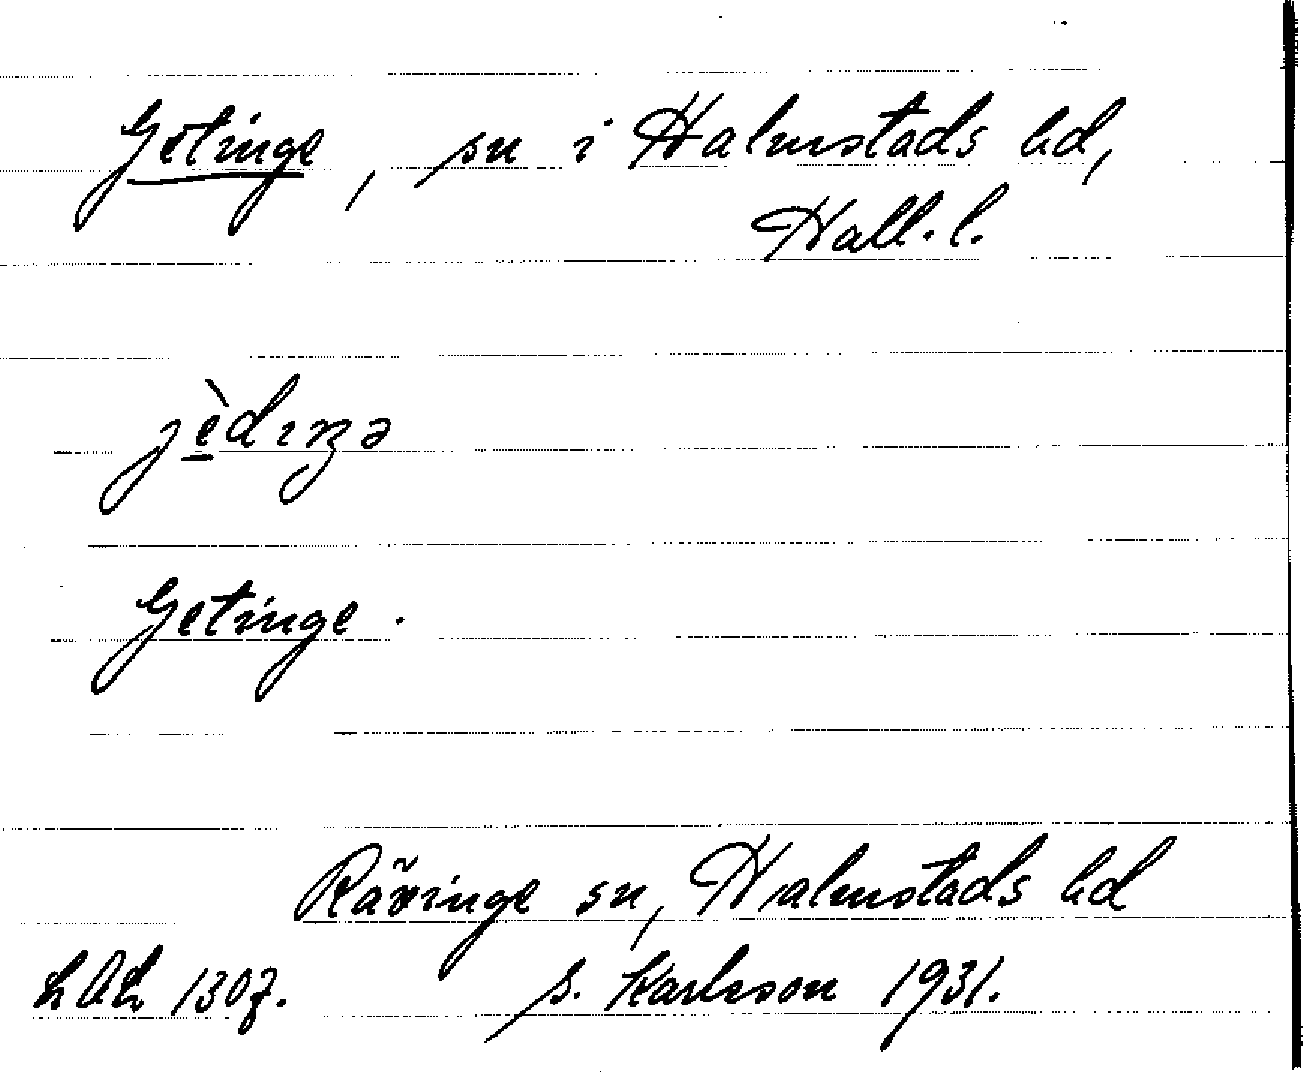 Getinge, sn i Halmstads hd,
Hall. l.
jèdıŋə
Getinge.
Rävinge sn, Halmstads hd
LAL 1307. S. Karlsson 1931.